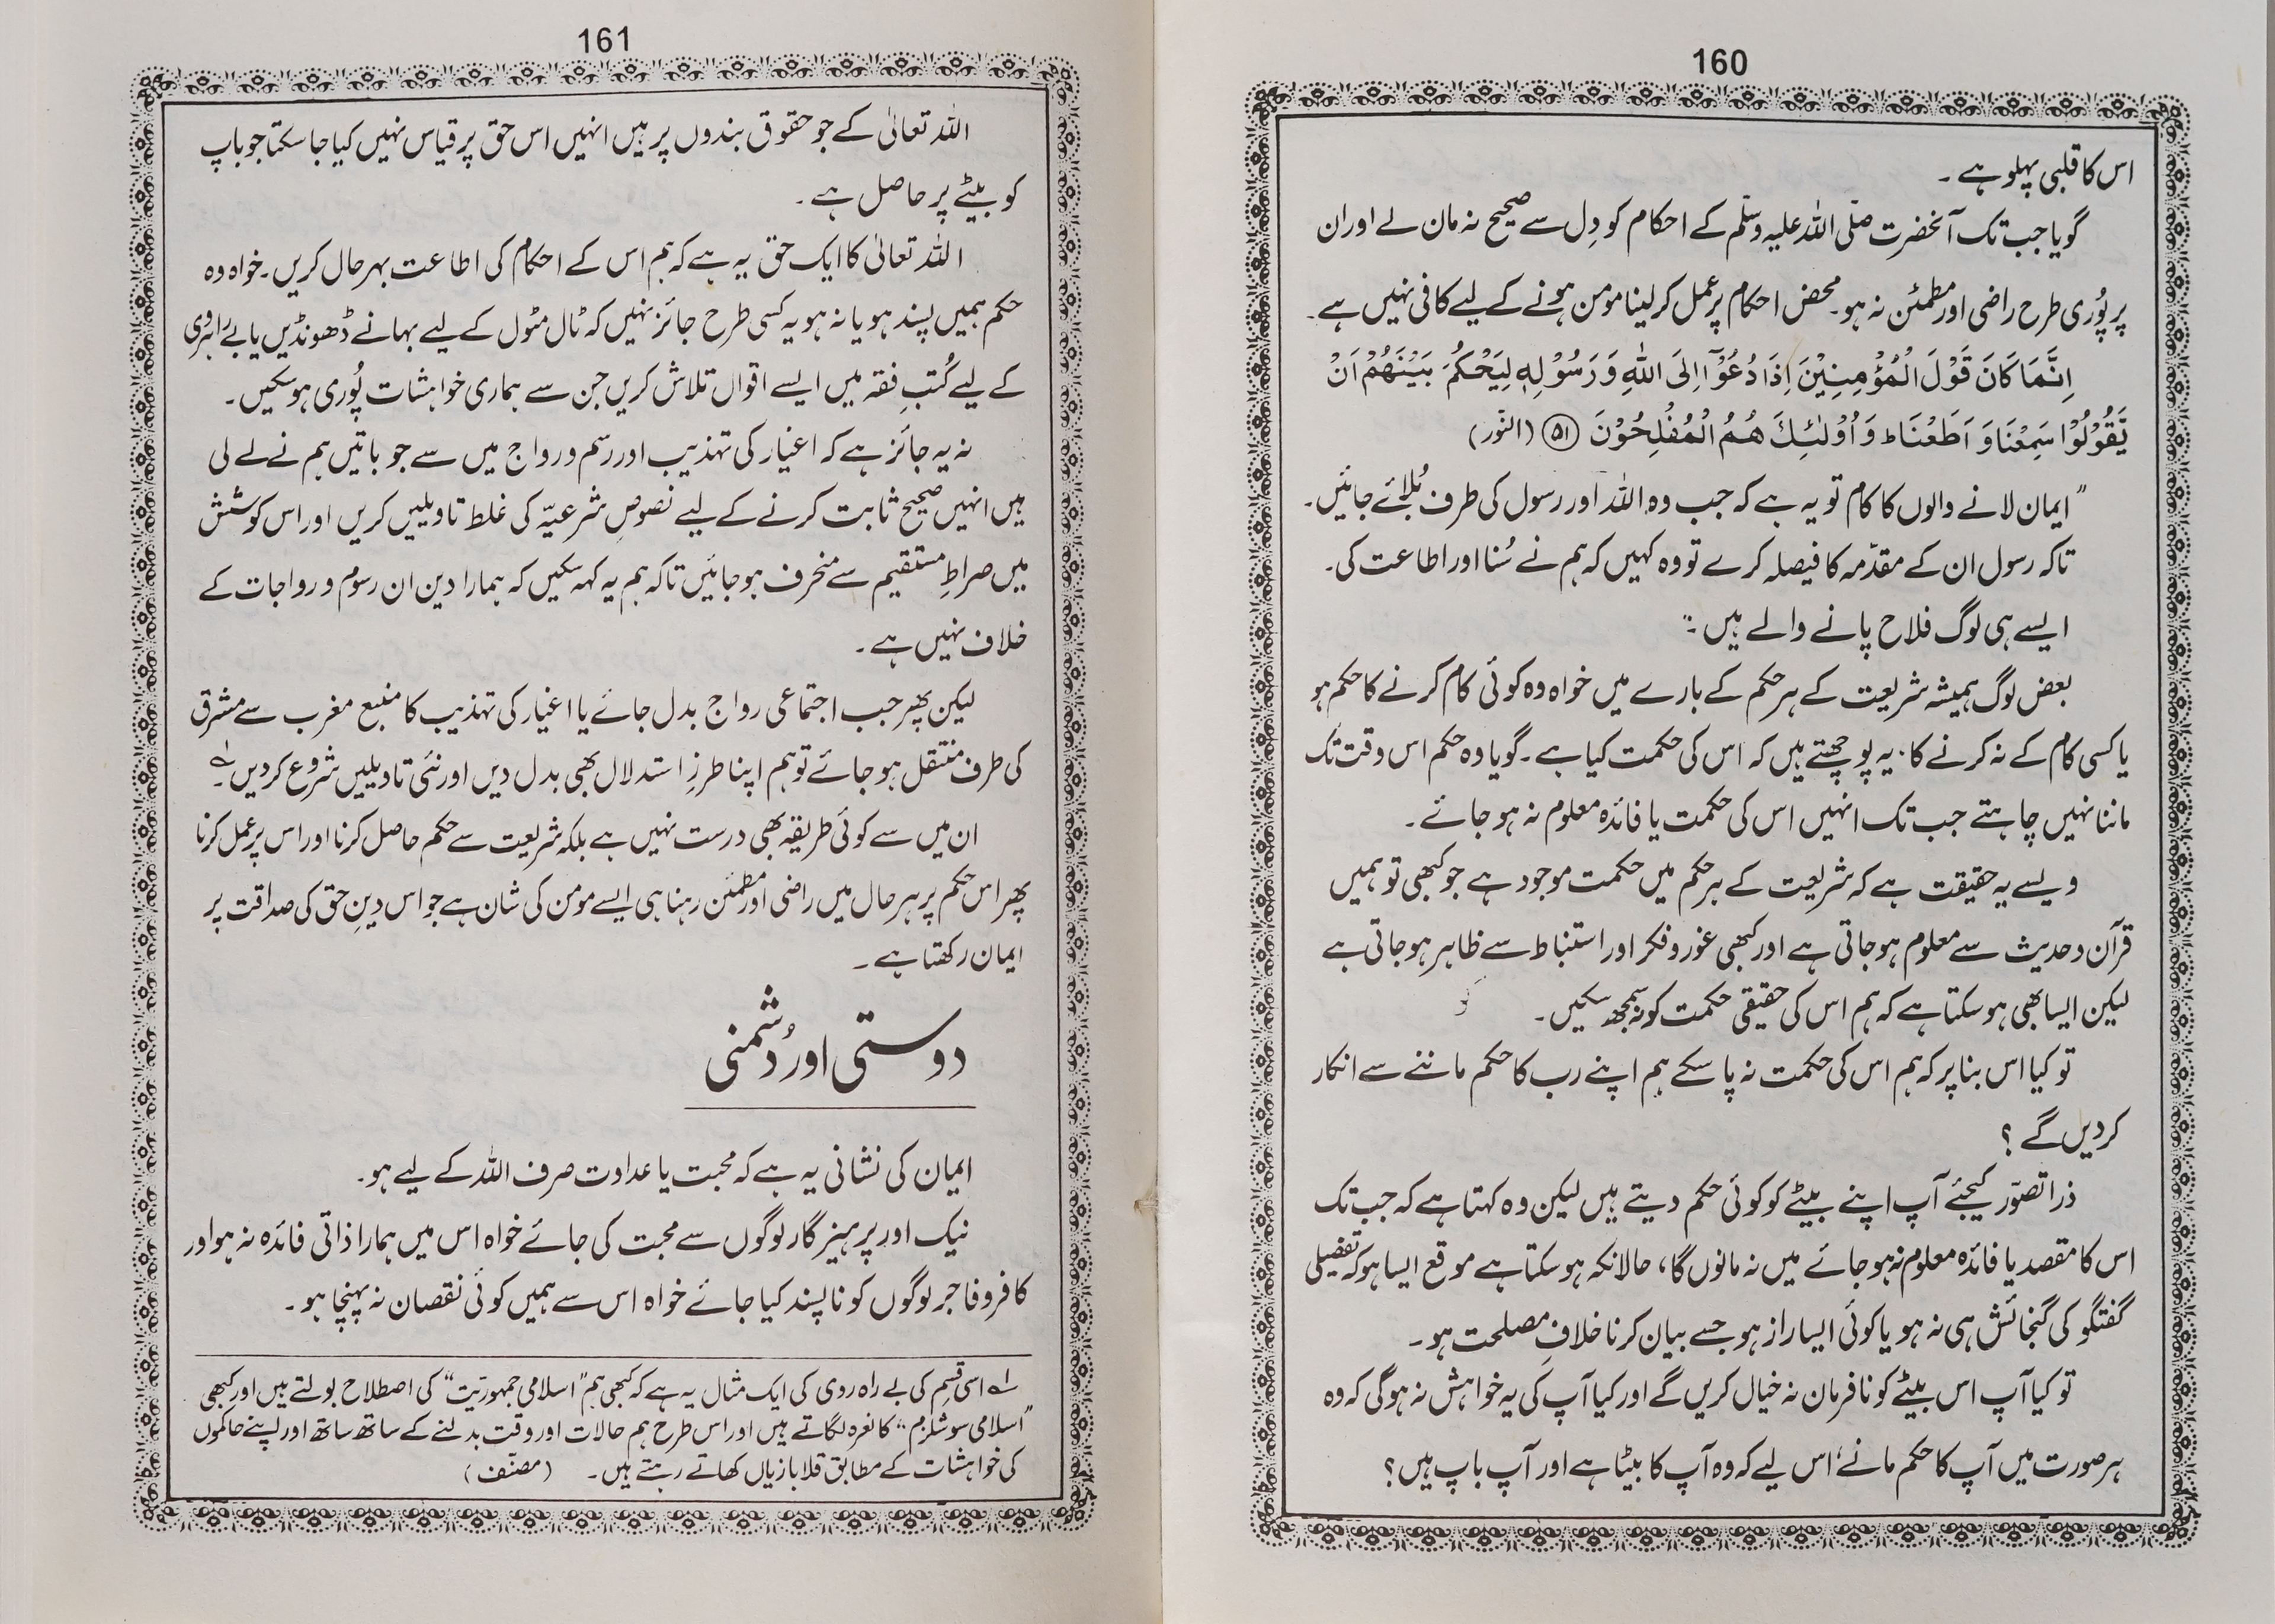 160
اس کا قلبی پہلو ہے ۔
گویا جب تک آنحضرت صلّی اللہ علیہ وسلّم کے احکام کو دِل سے صحیح نہ مان لے اور ان
پر پُوری طرح راضی اور مطمئن نہ ہو۔ محض احکام پر عمل کر لینا مومن ہونے کے لیے کافی نہیں ہے۔
اِنَّمَا كَانَ قَوْلَ الْمُؤْمِنِيْنَ اِذَا دُعُوْٓا اِلَى اللّٰهِ وَرَسُوْلِهٖ لِيَحْكُمَ بَيْنَهُمْ اَنْ
يَّقُوْلُوْا سَمِعْنَا وَ اَطَعْنَا ط وَ اُوْلٰٓئِكَ هُمُ الْمُفْلِحُوْنَ ۵۱ (النّور)
" ایمان لانے والوں کا کام تو یہ ہے کہ جب وہ اللہ اور رسول کی طرف بُلائے جائیں۔
تاکہ رسول ان کے مقدّمہ کا فیصلہ کرے تو وہ کہیں کہ ہم نے سُنا اور اطاعت کی۔
ایسے ہی لوگ فلاح پانے والے ہیں ۔"
بعض لوگ ہمیشہ شریعت کے ہر حکم کے بارے میں خواہ وہ کوئی کام کرنے کا حکم ہو
یا کسی کام کے نہ کرنے کا ۔ یہ پوچھتے ہیں کہ اس کی حکمت کیا ہے ۔ گویا وہ حکم اس وقت تک
ماننا نہیں چاہتے جب تک انہیں اس کی حکمت یا فائدہ معلوم نہ ہو جائے ۔
ویسے یہ حقیقت ہے کہ شریعت کے ہر حکم میں حکمت موجود ہے جو کبھی تو ہمیں
قرآن وحدیث سے معلوم ہو جاتی ہے اور کبھی غور وفکر اور استنباط سے ظاہر ہو جاتی ہے
لیکن ایسا بھی ہو سکتا ہے کہ ہم اس کی حقیقی حکمت کو نہ سمجھ سکیں ۔
تو کیا اس بنا پر کہ ہم اس کی حکمت نہ پا سکے ہم اپنے رب کا حکم ماننے سے انکار
کر دیں گے ؟
ذرا تصوّر کیجئے آپ اپنے بیٹے کو کوئی حکم دیتے ہیں لیکن وہ کہتا ہے کہ جب تک
اس کا مقصد یا فائدہ معلوم نہ ہو جائے میں نہ مانوں گا، حالانکہ ہو سکتا ہے موقع ایسا ہو کہ تفصیلی
گفتگو کی گنجائش ہی نہ ہو یا کوئی ایسا راز ہو جسے بیان کرنا خلافِ مصلحت ہو ۔
تو کیا آپ اس بیٹے کو نافرمان نہ خیال کریں گے اور کیا آپ کی یہ خواہش نہ ہوگی کہ وہ
ہر صورت میں آپ کا حکم مانے، اس لیے کہ وہ آپ کا بیٹا ہے اور آپ باپ ہیں ؟
161
اللہ تعالٰی کے جو حقوق بندوں پر ہیں انہیں اس حق پر قیاس نہیں کیا جا سکتا جو باپ
کو بیٹے پر حاصل ہے ۔
اللہ تعالٰی کا ایک حق یہ ہے کہ ہم اس کے احکام کی اطاعت بہر حال کریں ۔ خواہ وہ
حکم ہمیں پسند ہو یا نہ ہو یہ کسی طرح جائز نہیں کہ ٹال مٹول کے لیے بہانے ڈھونڈیں یا بے راہ روی
کے لیے کُتبِ فقہ میں ایسے اقوال تلاش کریں جن سے ہماری خواہشات پُوری ہو سکیں ۔
نہ یہ جائز ہے کہ اغیار کی تہذیب اور رسم و رواج میں سے جو باتیں ہم نے لے لی
ہیں انہیں صحیح ثابت کرنے کے لیے نصوصِ شرعیّہ کی غلط تاویلیں کریں اور اس کوشش
میں صراطِ مستقیم سے منحرف ہو جائیں تاکہ ہم یہ کہہ سکیں کہ ہمارا دین ان رسوم و رواجات کے
خلاف نہیں ہے ۔
لیکن پھر جب اجتماعی رواج بدل جائے یا اغیار کی تہذیب کا منبع مغرب سے مشرق
کی طرف منتقل ہو جائے تو ہم اپنا طرزِ استدلال بھی بدل دیں اور نئی تاویلیں شروع کر دیں ۔ ۱؎
ان میں سے کوئی طریقہ بھی درست نہیں ہے بلکہ شریعت سے حکم حاصل کرنا اور اس پر عمل کرنا
پھر اس حکم پر ہر حال میں راضی اور مطمئن رہنا ہی ایسے مومن کی شان ہے جو اس دینِ حق کی صداقت پر
ایمان رکھتا ہے ۔
دوستی اور دُشمنی
ایمان کی نشانی یہ ہے کہ محبت یا عداوت صرف اللہ کے لیے ہو۔
نیک اور پرہیز گار لوگوں سے محبت کی جائے خواہ اس میں ہمارا ذاتی فائدہ نہ ہو اور
کافر و فاجر لوگوں کو ناپسند کیا جائے خواہ اس سے ہمیں کوئی نقصان نہ پہنچا ہو ۔
۱؎ اسی قسم کی بے راہ روی کی ایک مثال یہ ہے کہ کبھی ہم "اسلامی جمہوریّت" کی اصطلاح بولتے ہیں اور کبھی
"اسلامی سوشلزم" کا نعرہ لگاتے ہیں اور اس طرح ہم حالات اور وقت بدلنے کے ساتھ ساتھ اور اپنے حاکموں
کی خواہشات کے مطابق قلابازیاں کھاتے رہتے ہیں ۔ (مصنّف)